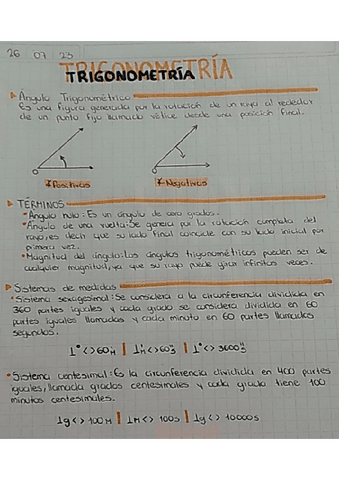 26 07 23
TRIGONOMETRÍA
Ángulo Trigonométrico
Es una figura generada por la rotación de un rayo al rededor
de un punto fijo llamado vétice desde una posición final.
*Positivos
*Negativos
TÉRMINOS
•Angulo nulo: Es un ángulo de cero grados.
•Ángulo de una vuelta: Se genera por la rotación completa del
rayo, es decir que su lado final coincide con su lado inicial por
primera vez.
•Magnitud del ángulo: Los ángulos trigonométricos pueden ser de
cualquier magnitud, ya que su rayo puede girar infinitas veces.
Sistemas de medidas
•Sistema sexagesimal: Se considera a la circunferencia dividida en
360 partes iguales y cada grado se considera dividida en 60
partes iguales llamados y cada minuto en 60 partes llamados
segundos.
1°<>60M | 1M<>60S | 1°<>3600S
•Sistema centesimal: Es la circunferencia dividida en 400 partes
iguales, llamada grados centesimales y cada grado tiene 100
minutos centesimales.
1g<>100M | 1M<>100s | 1g<>10000s